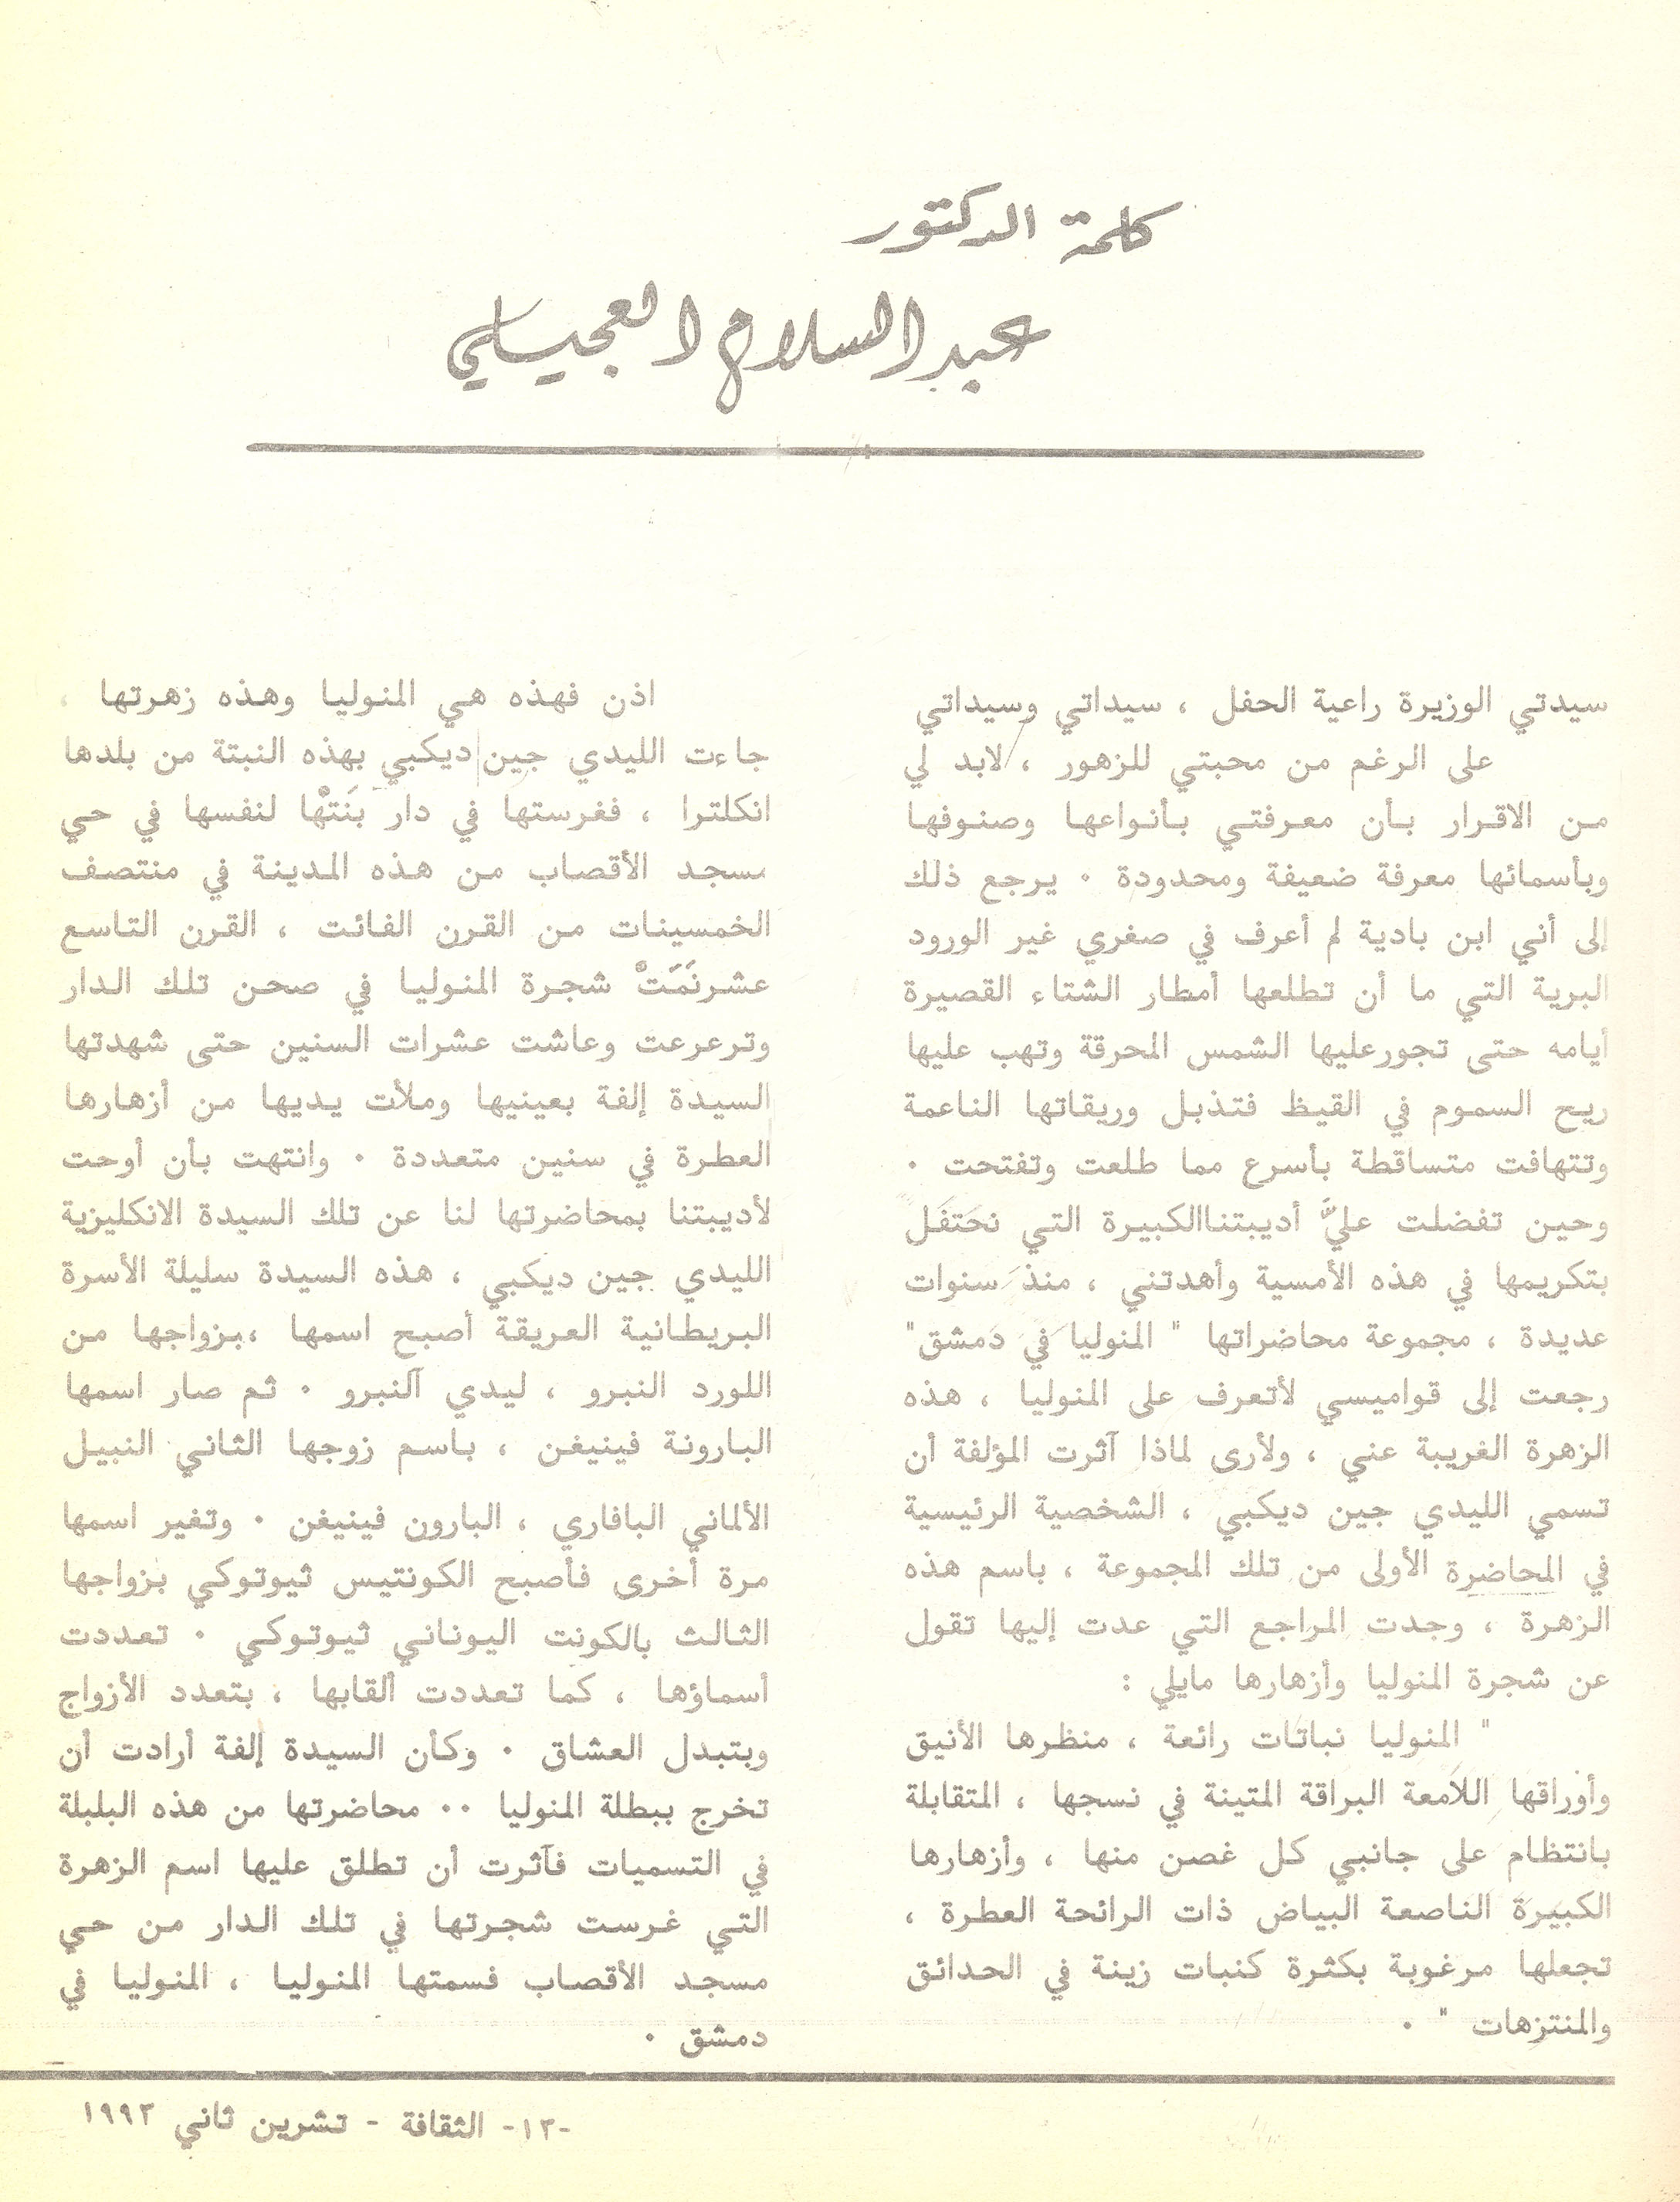 كلمة الدكتور
عبد السلام العجيلي
سيدتي الوزيرة راعية الحفل ، سيداتي وسيداتي
على الرغم من محبتي للزهور ، لابد لي
من الاقرار بأن معرفتي بأنواعها وصنوفها
وبأسمائها معرفة ضعيفة ومحدودة . يرجع ذلك
إلى أني ابن بادية لم أعرف في صغري غير الورود
البرية التي ما أن تطلعها أمطار الشتاء القصيرة
أيامه حتى تجورعليها الشمس المحرقة وتهب عليها
ريح السموم في القيظ فتذبل وريقاتها الناعمة
وتتهافت متساقطة بأسرع مما طلعت وتفتحت .
وحين تفضلت عليَّ أديبتناالكبيرة التي نحتفل
بتكريمها في هذه الأمسية وأهدتني ، منذ سنوات
عديدة ، مجموعة محاضراتها " المنوليا في دمشق"
رجعت إلى قواميسي لأتعرف على المنوليا ، هذه
الزهرة الغريبة عني ، ولأرى لماذا آثرت المؤلفة أن
تسمي الليدي جين ديكبي ، الشخصية الرئيسية
في المحاضرة الأولى من تلك المجموعة ، باسم هذه
الزهرة ، وجدت المراجع التي عدت إليها تقول
عن شجرة المنوليا وأزهارها مايلي :
" المنوليا نباتات رائعة ، منظرها الأنيق
وأوراقها اللامعة البراقة المتينة في نسجها ، المتقابلة
بانتظام على جانبي كل غصن منها ، وأزهارها
الكبيرة الناصعة البياض ذات الرائحة العطرة ،
تجعلها مرغوبة بكثرة كنبات زينة في الحدائق
والمنتزهات " .
اذن فهذه هي المنوليا وهذه زهرتها ،
جاءت الليدي جين ديكبي بهذه النبتة من بلدها
انكلترا ، فغرستها في دار بَنَتْها لنفسها في حي
مسجد الأقصاب من هذه المدينة في منتصف
الخمسينات من القرن الفائت ، القرن التاسع
عشرنَمَتْ شجرة المنوليا في صحن تلك الدار
وترعرعت وعاشت عشرات السنين حتى شهدتها
السيدة إلفة بعينيها وملأت يديها من أزهارها
العطرة في سنين متعددة . وانتهت بأن أوحت
لأديبتنا بمحاضرتها لنا عن تلك السيدة الانكليزية
الليدي جين ديكبي ، هذه السيدة سليلة الأسرة
البريطانية العريقة أصبح اسمها ،بزواجها من
اللورد النبرو ، ليدي آلنبرو . ثم صار اسمها
البارونة فينيغن ، باسم زوجها الثاني النبيل
الألماني البافاري ، البارون فينيغن . وتغير اسمها
مرة أخرى فأصبح الكونتيس ثيوتوكي بزواجها
الثالث بالكونت اليوناني ثيوتوكي . تعددت
أسماؤها ، كما تعددت ألقابها ، بتعدد الأزواج
وبتبدل العشاق . وكأن السيدة إلفة أرادت أن
تخرج ببطلة المنوليا .. محاضرتها من هذه البلبلة
في التسميات فآثرت أن تطلق عليها اسم الزهرة
التي غرست شجرتها في تلك الدار من حي
مسجد الأقصاب فسمتها المنوليا ، المنوليا في
دمشق .
-١٣- الثقافة - تشرين ثاني ١٩٩٣